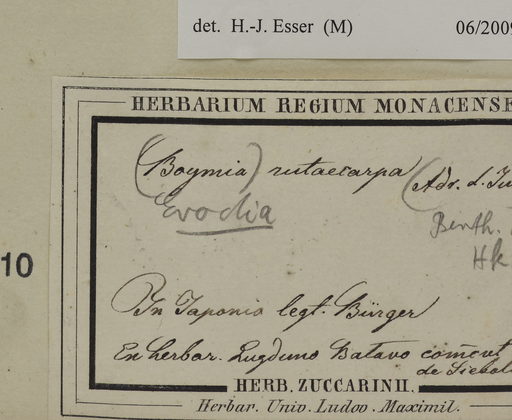 det. H.-J. Esser (M) 06/2009
HERBARIUM REGIUM MONACENSE
(Boymia) rutaecarpa (Adr. d. Ju
Evodia
Benth.
Hk
10
In Japonia legt. Bürger
Ex herbar. Lugduno Batavo com̄cvt
de Siebol
HERB. ZUCCARINII.
Herbar. Univ. Ludov. Maximil.